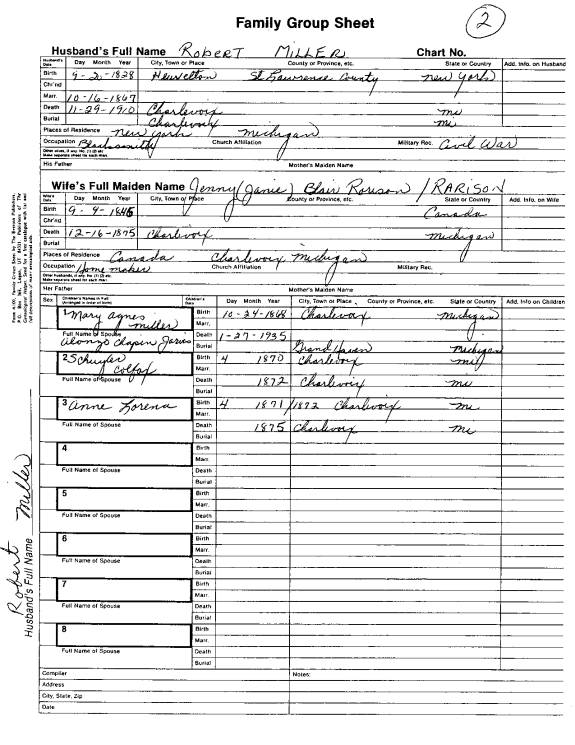 Family Group Sheet
2
Husband's Full Name ROBERT MILLER Chart No.
Husband's Data Day Month Year City, Town or Place County or Province, etc. State or Country Add. Info. on Husband
Birth 9-2-1828 Heuvelton St. Lawrence County New York
Chr'nd
Marr. 10-16-1867
Death 11-29-1910 Charlevoix Mi
Burial Charlevoix Mi
Places of Residence New York Michigan
Occupation Blacksmith Church Affiliation Military Rec. Civil War
Other wives, if any. No. (1) (2) etc.
Make separate sheet for each marr.
His Father Mother's Maiden Name
Wife's Full Maiden Name Jenny (Janie) Blair Rorison / RARISON
Wife's Data Day Month Year City, Town or Place County or Province, etc. State or Country Add. Info. on Wife
Birth 9-9-1846 Canada
Chr'nd
Death 12-16-1875 Charlevoix Michigan
Burial
Places of Residence Canada Charlevoix Michigan
Occupation Home maker Church Affiliation Military Rec.
Other husbands, if any. No. (1) (2) etc.
Make separate sheet for each marr.
Her Father Mother's Maiden Name
Sex Children's Names in Full Children's Data Day Month Year City, Town or Place County or Province, etc. State or Country Add. Info on Children
1 Mary Agnes Birth 10-24-1868 Charlevoix Michigan
Miller Marr.
Full Name of Spouse Death 1-27-1935
Alonzo Chapin Burial Grand Haven Michigan
2 Schuyler Birth 4 1870 Charlevoix Mi
Colfax Marr.
Full Name of Spouse Death 1872 Charlevoix Mi
Burial
3 Anne Lorena Birth 4 1871/1872 Charlevoix Mi
Marr.
Full Name of Spouse Death 1875 Charlevoix Mi
Burial
4 Birth
Marr.
Full Name of Spouse Death
Burial
5 Birth
Marr.
Full Name of Spouse Death
Burial
6 Birth
Marr.
Full Name of Spouse Death
Burial
7 Birth
Marr.
Full Name of Spouse Death
Burial
8 Birth
Marr.
Full Name of Spouse Death
Burial
Compiler Notes:
Address
City, State, Zip
Date
Husband's Full Name Robert Miller